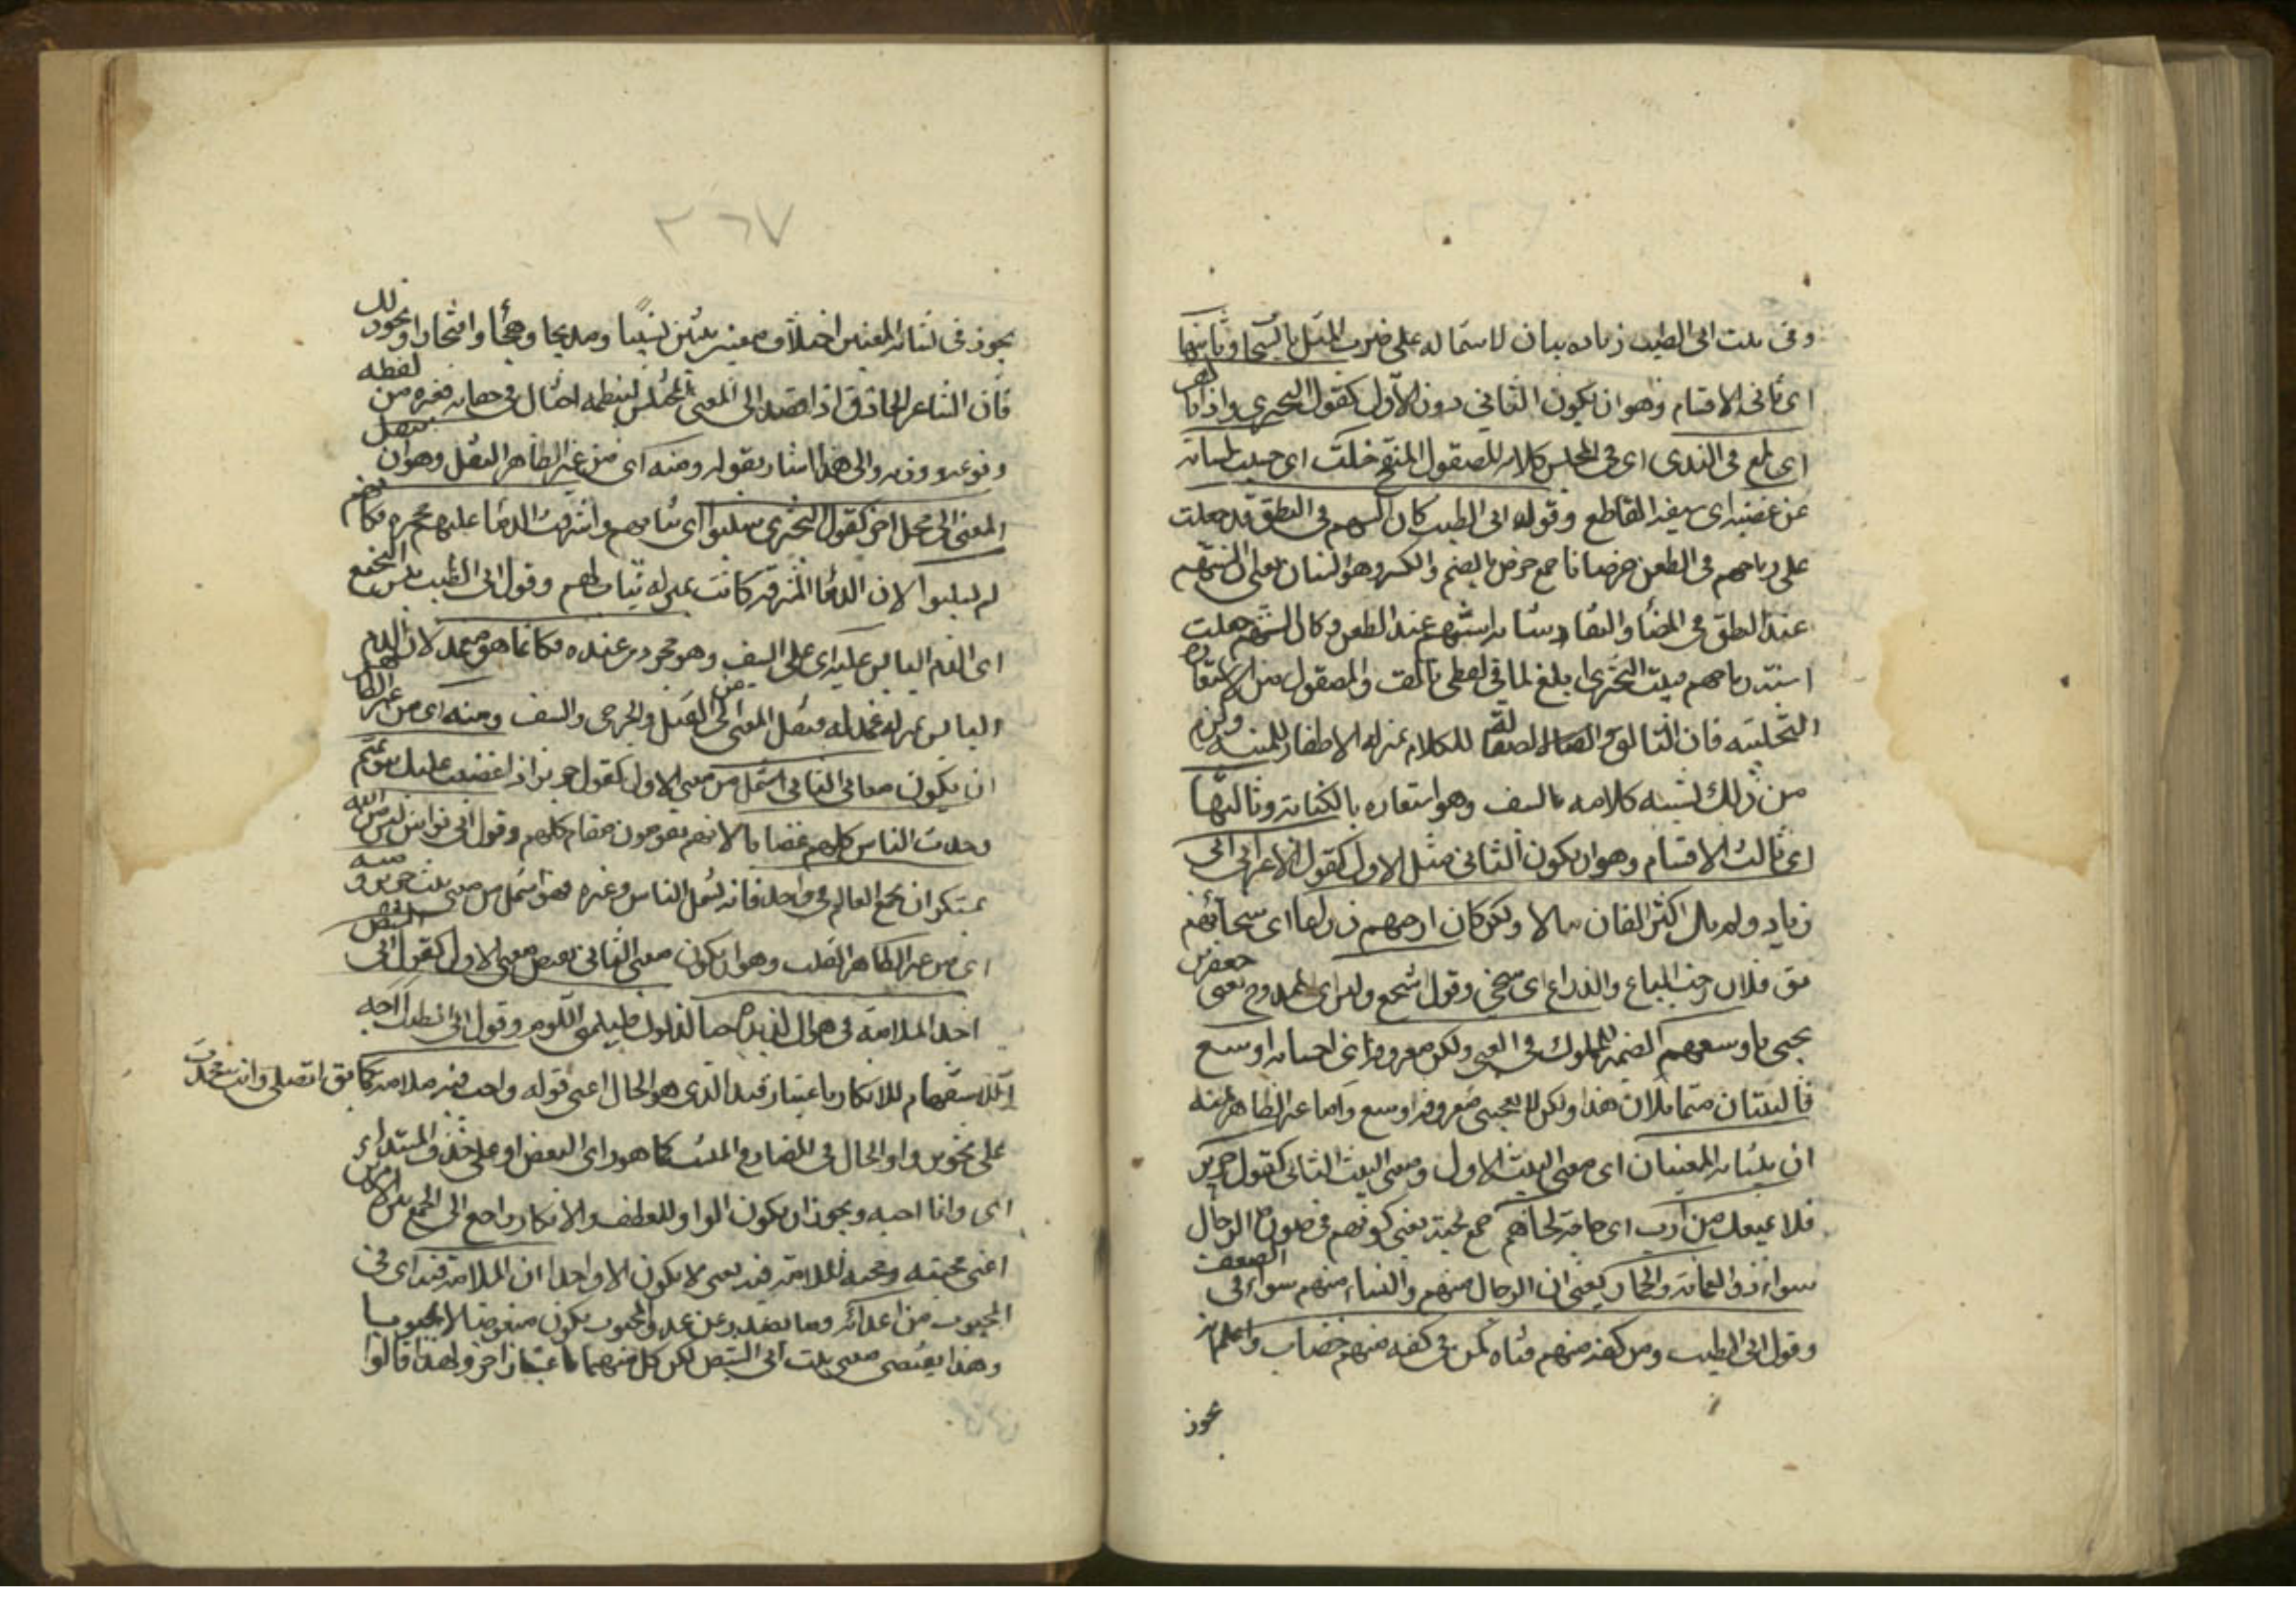 وفى بيت ابى الطيب زيادة بيان لاشتماله على ضرب المثل بالسحاب وثانيها
اى ثانى الاقسام وهو ان يكون الثانى دون الاول كقول البحترى واذا تالق
اى لمع فى الندى اى فى المجلس كلامه المصقول المنقح خلت اى حسبت لسانه
من عضبه اى سيفه القاطع وقول ابى الطيب كان السنهم فى النطق قد جعلت
على رماحهم فى الطعن خرصانا جمع خرص بالضم والكسر وهو السنان يعنى ان السنتهم
عند النطق فى المضاء والنفاذ تشابه اسنتهم عند الطعن فكان السنتهم جعلت
اسنة رماحهم فبيت البحترى ابلغ لما فى لفظى تالق والمصقول من الاستعارة
التخييلية فان التالق والصقالة للكلام بمنزلة الاظفار للمنية ولزم
من ذلك تشبيه كلامه بالسيف وهو استعارة بالكناية وثالثها
اى ثالث الاقسام وهو ان يكون الثانى مثل الاول كقول الاعرابى ابى
زياد ولم يك اكثر الفتيان مالا ولكن كان ارحبهم ذراعا اى سخاهم
يق فلان رحب الباع والذراع اى سخى وقول اشجع وليس اى الممدوح يعنى جعفر بن
يحيى باوسعهم الضمير للملوك فى الغنى ولكن معروفه اى احسانه اوسع
فالبيتان متماثلان هذا ولكن لا يعجبنى معروفه اوسع واما غير الظاهر فمنه
ان يتشابه المعنيان اى معنى البيت الاول ومعنى البيت الثانى كقول جرير
فلا يمنعك من ارب اى حاجة لحاهم جمع لحية يعنى كونهم فى صورة الرجال
سواء ذو العمامة والخمار يعنى ان الرجال منهم والنساء منهم سواء فى الضعف
وقول ابى الطيب ومن فى كفه منهم قناة كمن فى كفه منهم خضاب واعلم انه
يجوز
٣٦٧
يجوز فى تشابه المعنيين اختلاف معنيين بيتين نسيبا ومديحا وهجاء وافتخارا ونحو ذلك
فان الشاعر الحاذق اذا قصد الى المعنى المختلس لينظمه احتال فى اخفائه فغيره من لفظه
ونوعه ووزنه والى هذا اشار بقوله ومنه اى من غير الظاهر النقل وهو ان ينقل
المعنى الى محل اخر كقول البحترى سلبوا اى ثيابهم واشرقت الدماء عليهم محمرة فكانهم
لم يسلبوا لان الدماء المشرقة كانت بمنزلة ثياب لهم وقول ابى الطيب يبس النجيع
اى الدم اليابس عليه اى على السيف وهو مجرد من غمده فكانما هو مغمد لان الدم
اليابس بمنزلة غمد له فنقل المعنى من القتلى والجرحى الى السيف ومنه اى من غير الظاهر
ان يكون معنى الثانى اشمل من معنى الاول كقول جرير اذا غضبت عليك بنو تميم
وجدت الناس كلهم غضابا لانهم يقومون مقام كلهم وقول ابى نواس ليس من الله
بمستنكر ان يجمع العالم فى واحد فانه يشمل الناس وغيره فهو اشمل من معنى بيت جرير ومنه
اى من غير الظاهر القلب وهو ان يكون معنى الثانى نقيض معنى الاول كقول ابى الشيص
اجد الملامة فى هواك لذيذة حبا لذكرك فليلمنى اللوم وقول ابى الطيب أاحبه
الاستفهام للانكار باعتبار القيد الذى هو الحال اعنى قوله واحب فيه ملامة كما يق اتصلى وانت محدث
على تجويز واو الحال فى المضارع المثبت كما هو راى البعض او على حذف المبتداء
اى وانا احب ويجوز ان يكون الواو للعطف والانكار راجع الى الجمع بين الامرين
اعنى محبته ومحبة الملامة فيه يعنى لا يكون الا واحدا ان الملامة فيه اى فى
المحبوب من اعدائه وما يصدر عن عدو المحبوب يكون مبغوضا لا محبوبا
وهذا نقيض معنى بيت ابى الشيص لكن كل منهما باعتبار اخر ولهذا قالوا